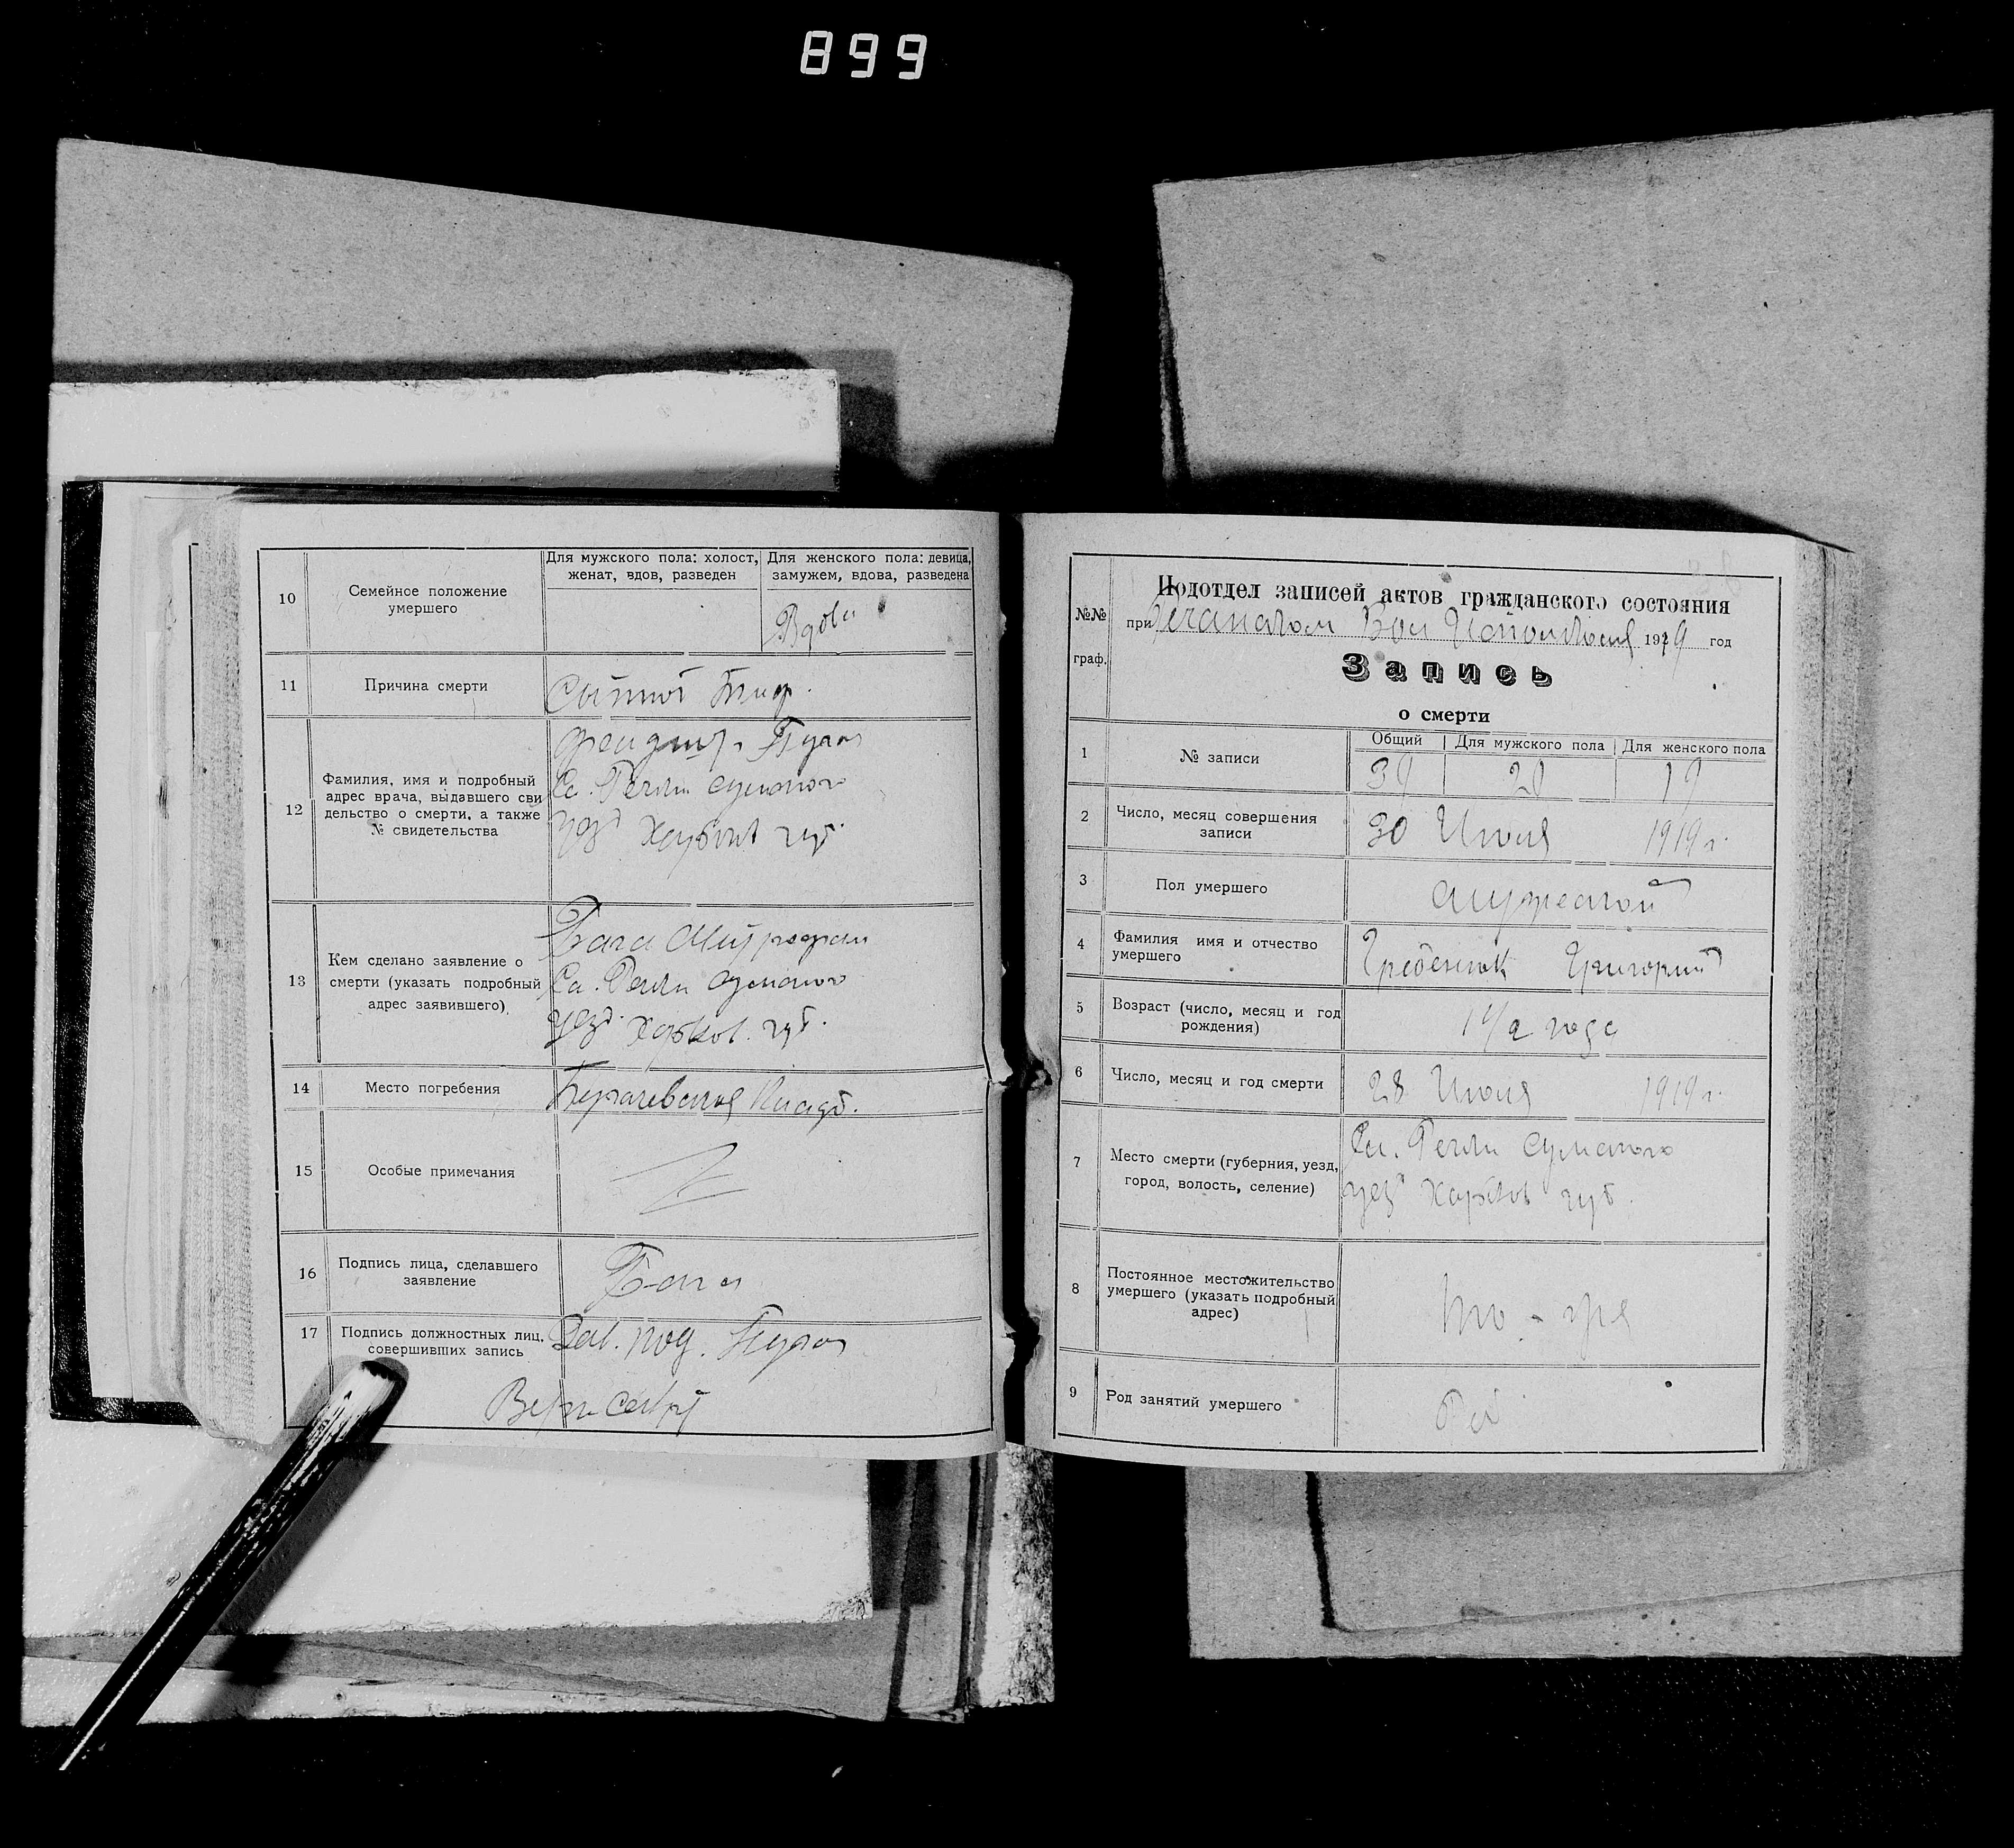 899
10
Семейное положение
умершего
Для мужского пола: холост,
женат, вдов, разведен
Для женского пола: девица,
замужем, вдова, разведена
Вдова
11
Причина смерти
Сыпной Тиф.
12
Фамилия, имя и подробный
адрес врача, выдавшего сви
дельство о смерти, а также
№ свидетельства
Сл. Речки Сумского
уезд Харьков губ.
13
Кем сделано заявление о
смерти (указать подробный
адрес заявившего)
Митрофан
Сл. Речки Сумского
уезд. Харьков. губ.
14
Место погребения
Кладб.
15
Особые примечания
16
Подпись лица, сделавшего
заявление
17
Подпись должностных лиц,
совершивших запись
Зав. под.
№№
граф.
Подотдел записей актов гражданского состояния
при 1919 год
Запись
о смерти
1
№ записи
Общий
Для мужского пола
Для женского пола
39
20
19
2
Число, месяц совершения
записи
30 Июля 1919 г.
3
Пол умершего
Мужской
4
Фамилия имя и отчество
умершего
Гребеник Григорий
5
Возраст (число, месяц и год
рождения)
1 1/2 года
6
Число, месяц и год смерти
28 Июля 1919 г.
7
Место смерти (губерния, уезд,
город, волость, селение)
Сл. Речки Сумского
уезд Харьков губ.
8
Постоянное местожительство
умершего (указать подробный
адрес)
9
Род занятий умершего